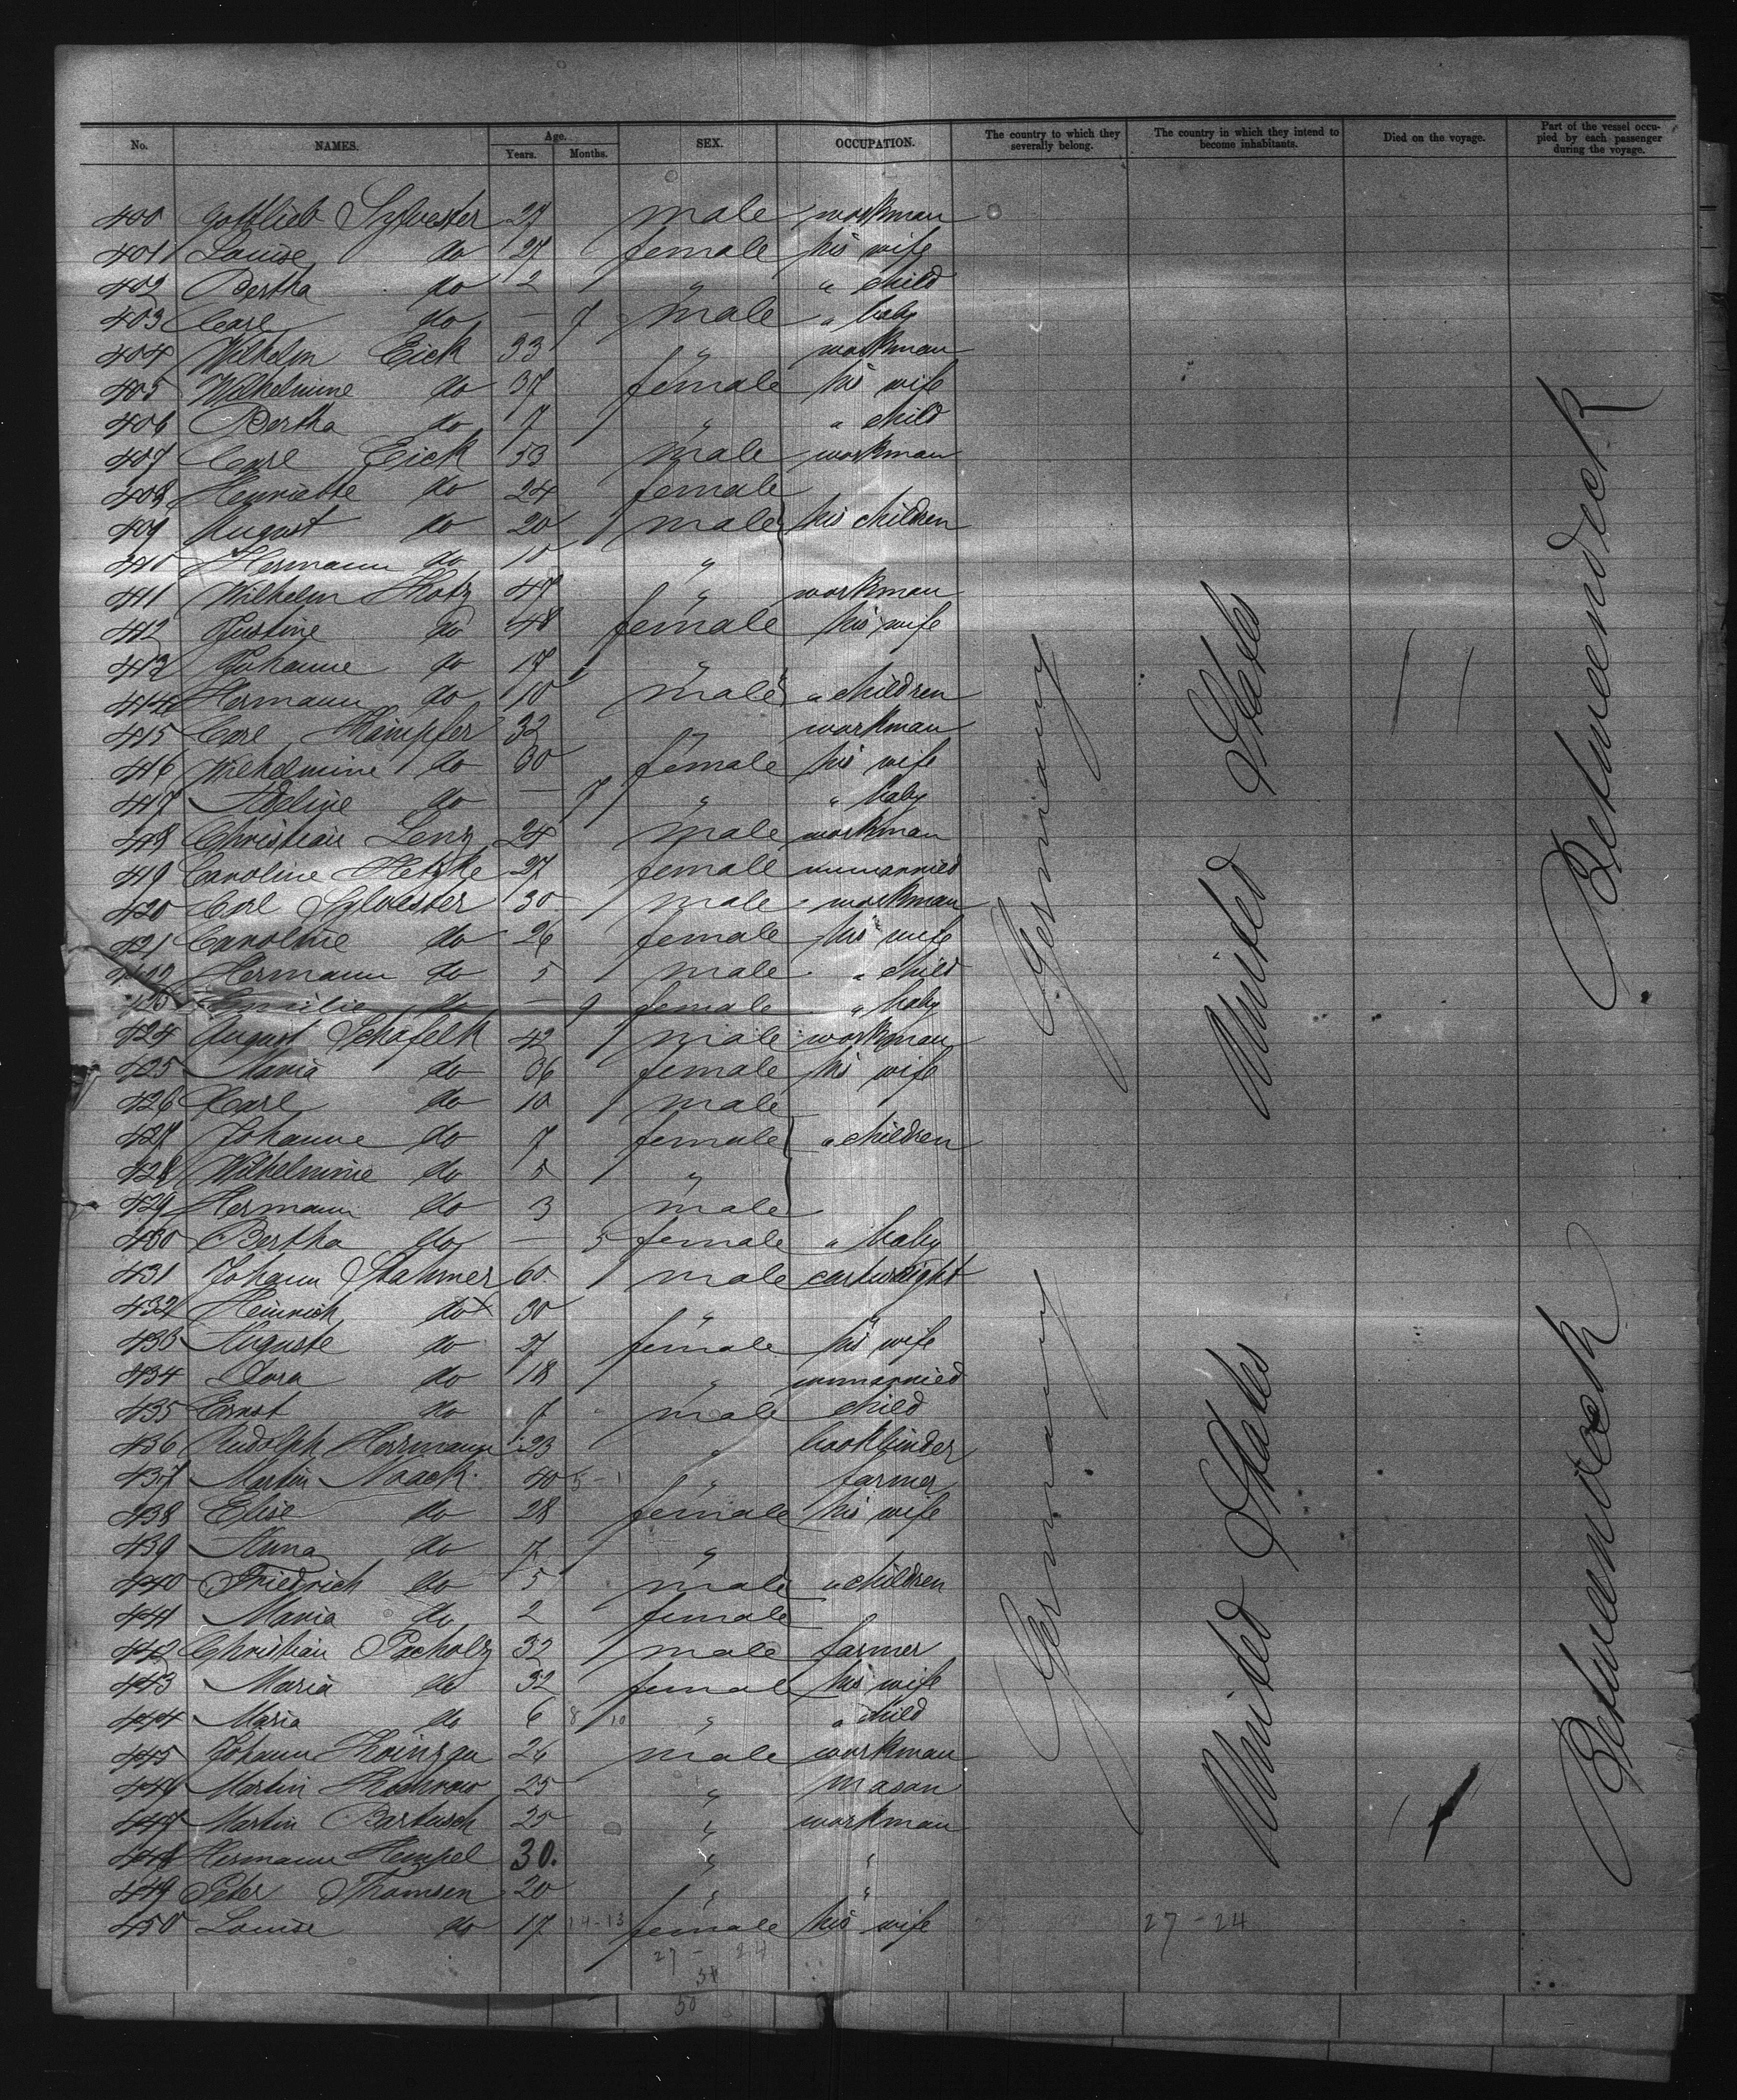 No. NAMES. Age. Years. Months. SEX. OCCUPATION. The country to which they severally belong. The country in which they intend to become inhabitants. Died on the voyage. Part of the vessel occupied by each passenger during the voyage.
400 Gottlieb Sylvester 27 male workman
401 Louise do 27 female his wife
402 Bertha do 2 " " child
403 Carl do — 7 male " baby
404 Wilhelm Eick 33 " workman
405 Wilhelmine do 37 female his wife
406 Bertha do 7 " " child
407 Carl Eick 53 male workman
408 Henriette do 24 female
409 August do 20 male his children
410 Hermann do 10 "
411 Wilhelm Kotz 47 " workman
412 Justine do 48 female his wife
413 Johanne do 17 "
414 Hermann do 10 male " children
415 Carl Kämpfer 32 " workman
416 Wilhelmine do 30 female his wife
417 Adeline do — 7 " " baby
418 Christian Lenz 24 male workman
419 Caroline Hetzke 27 female unmarried
420 Carl Sylvester 30 male workman
421 Caroline do 26 female his wife
422 Hermann do 5 male " child
423 Emilie do — 9 female " baby
424 August Schafelk 42 male workman
425 Maria do 36 female his wife
426 Carl do 10 male
427 Johanne do 7 female " children
428 Wilhelmine do 5 "
429 Hermann do 3 male
430 Bertha do — 5 female " baby
431 Johann Stahmer 60 male cartwright
432 Heinrich do x 30 " "
433 Auguste do 27 female his wife
434 Dora do 18 " unmarried
435 Ernst do 7 male child
436 Rudolph Herrmann 23 " bookbinder
437 Martin Noack 40 5-1 " farmer
438 Elise do 28 female his wife
439 Anna do 7 "
440 Friedrich do 5 male " children
441 Maria do 2 female
442 Christian Pacholz 32 male farmer
443 Maria do 32 female his wife
444 Maria do 6 8 10 " " child
445 Johann 26 male workman
446 Martin 25 " mason
447 Martin Bartusch 25 " workman
448 Hermann Hempel 30. " "
449 Peter Thomsen 20 " "
450 Louise do 17 14-13 female his wife 27-24
27 - 24
50
Germany
Germany
United States
United States
Betweendeck
Betweendeck